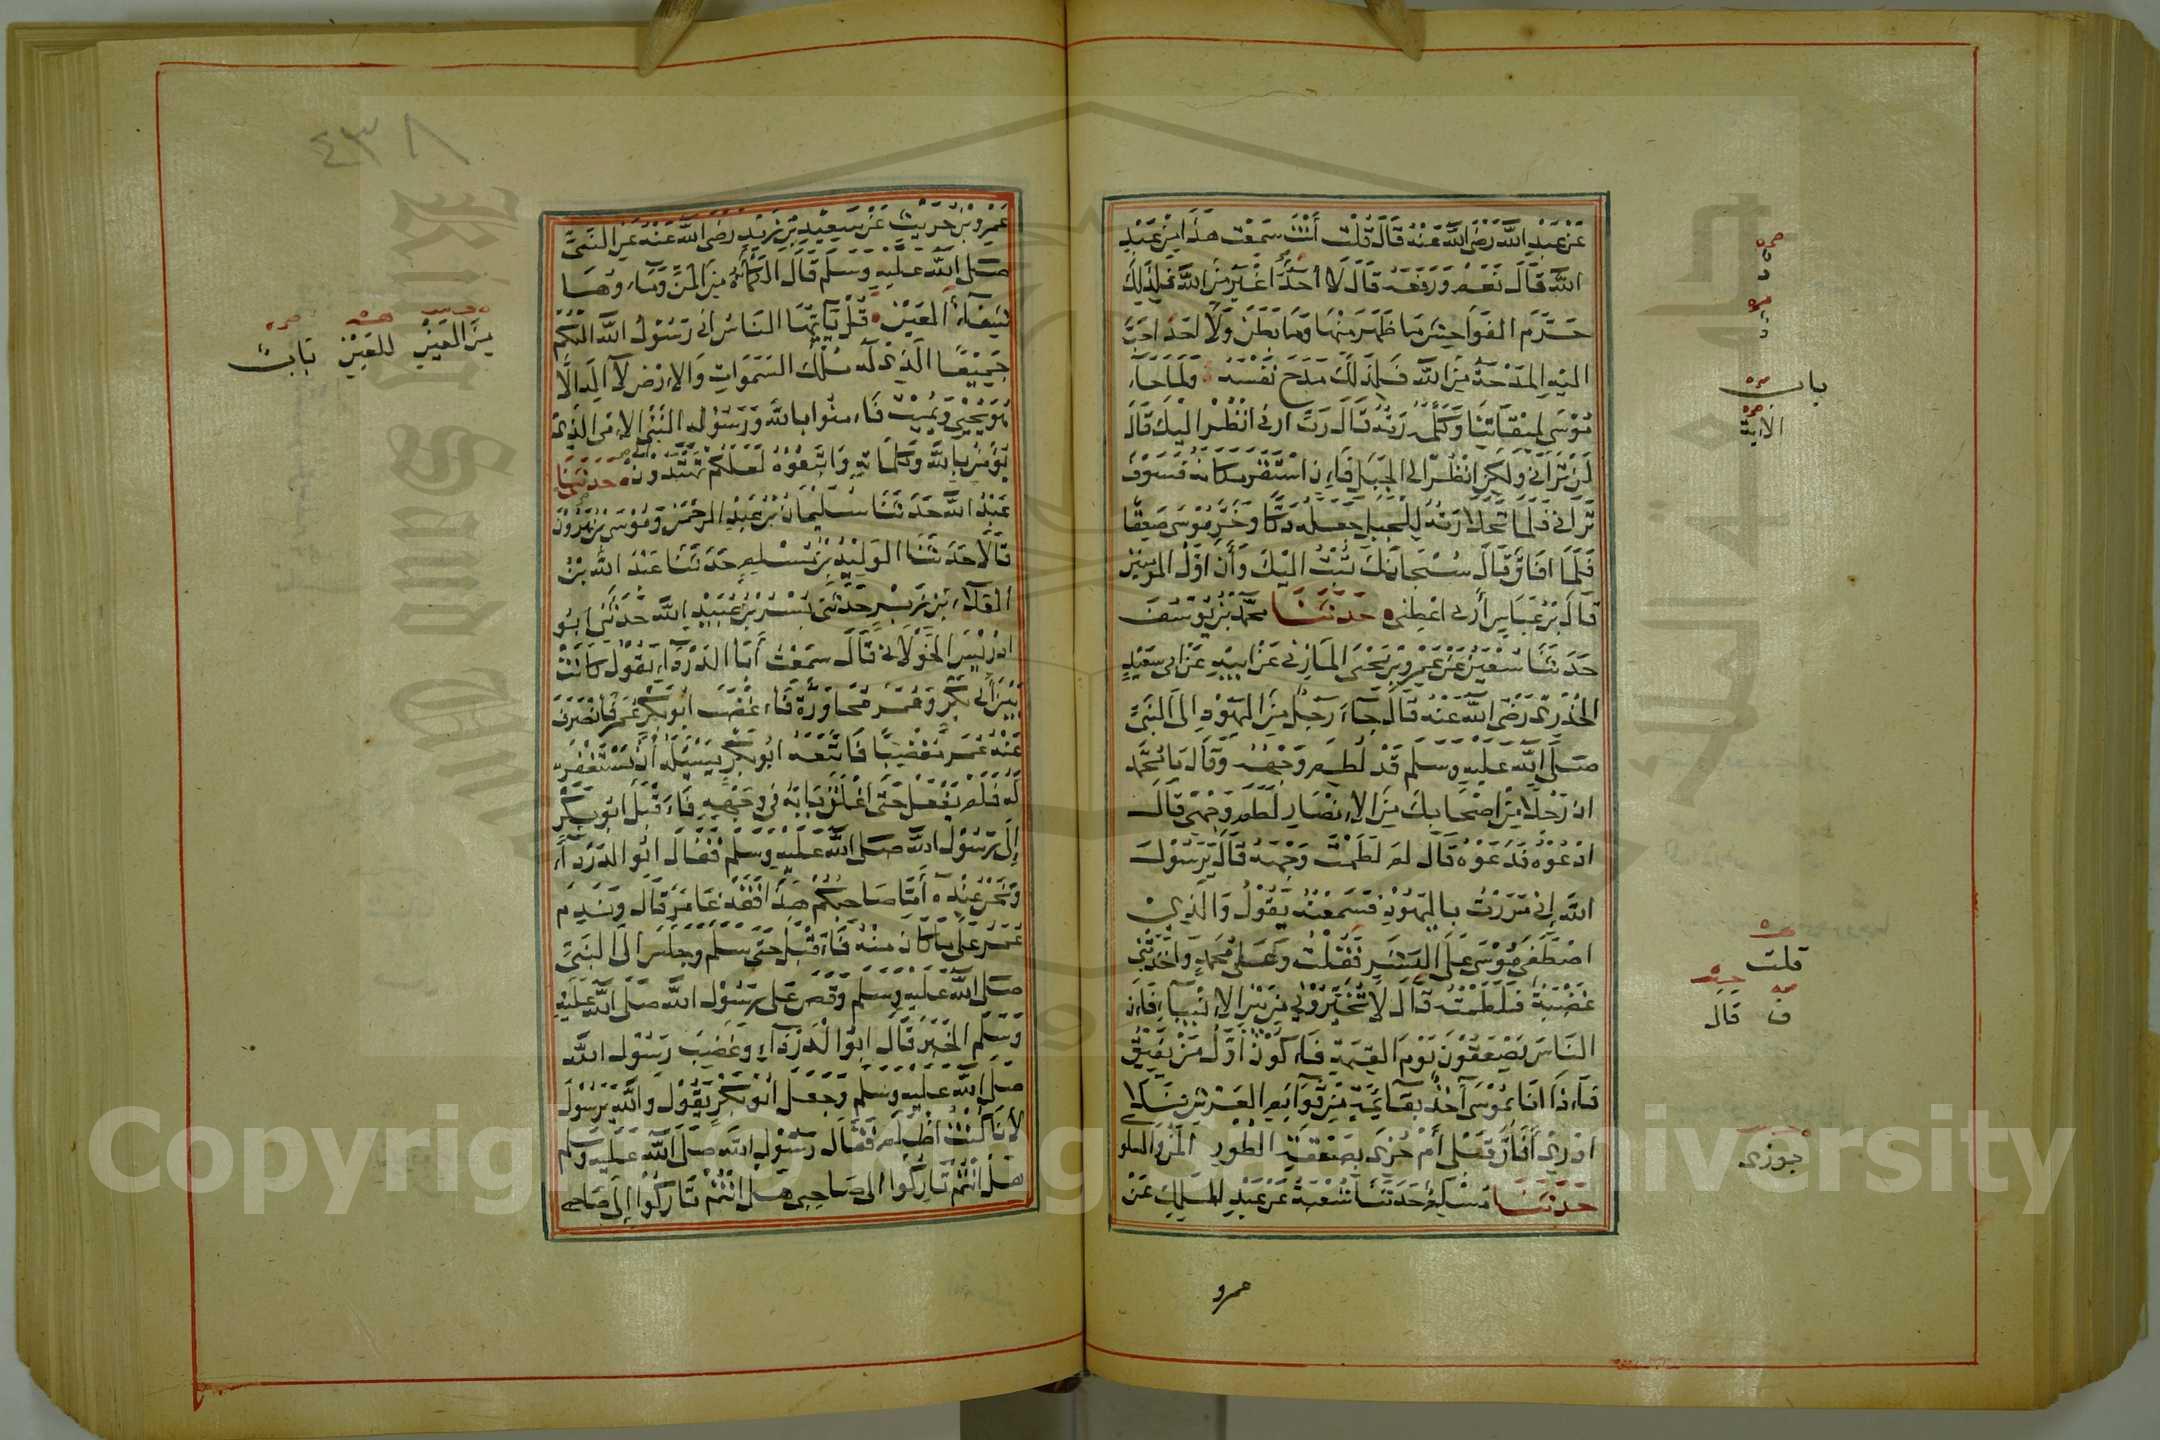 عَنْ عَبْدِ اللّٰه رَضِىَ اللّٰهُ عَنْهُ قَالَ قُلْتُ أَنْتَ سَمِعْتَ هَذَا مِنْ عَبْدِ
اللّٰه قَالَ نَعَمْ وَرَفَعَهُ قَالَ لَا أحَدَ اغْيَر مِنَ اللّٰهِ فَلِذَلِكَ
حَرَّمَ الفَوَاحِشَ مَا ظَهَرَ مِنْهَا وَمَا بَطَنَ وَلَا احَدَ احَبّ
اليْهِ المِدْحَة مِنَ اللّٰه فَلِذَلِكَ مَدَحَ نَفْسَهُ وَلَمَّا جَاءَ
مُوْسَى لِمِيْقَاتِنَا وَكَلَّمَهُ رَبُّهُ قَالَ رَبِّ ارِنِى انْظُرْ الَيْكَ قَالَ
لَنْ تَرَانِى وَلكِنِ انْظُرْ الى الجَبَلِ فَاِنِ اسْتَقَرَّ مَكَانَهُ فَسَوْفَ
تَرَانِى فَلَمَّا تَجَلَّا رَبُّهُ لِلْجَبَلِ جَعَلَهُ دَكًّا وَخَرَّ مُوْسَى صَعِقًا
فَلَمَّا افَاقَ قَالَ سُبْحَانَكَ تُبْتُ اليْكَ وَأَنَا اوَّلُ المُوْمِنِيْنَ
قَالَ بْنُ عَبَّاسٍ أَرِنِى اعْطِنِى حَدَّثَنَا مُحَمَّدُ بْنُ يُوْسُفَ
حَدَّثَنَا سُفْيَنُ عَنْ عَمْرِو بْنِ يَحْيَى المَازِنِى عَنْ ابِيْهِ عَنْ ابى سَعِيْدٍ
الخُدْرِىّ رَضِىَ اللّٰه عَنْهُ قَالَ جَآءَ رَجُلٌ مِنَ اليَهُوْدِ الى النَّبِىِّ
صَلَّى اللّٰه عَلَيْهِ وَسَلَّم قَدْ لُطِمَ وَجْهُهُ وَقَالَ يَا مُحَمَّد
انّ رَجُلًا مِنْ اصْحَابِكَ مِنَ الاِنْصَارِ لَطَمَ وَجْهِى قَالَ
ادْعُوْهُ فَدَعَوْهُ قَالَ لِمَ لَطَمْتَ وَجْهَهُ قَالَ يَرَسُوْلَ
اللّٰه اِنِّى مَرَرْتُ بِاليَهُوْدِ فَسَمِعْتُهُ يَقُوْلُ وَالَّذِىْ
اصْطَفَى مُوْسَى عَلَى البَشَرِ فَقُلْتُ وَعَلى مُحَمَّدٍ وَاَخَذَتْنِى
غَضْبَةٌ فَلَطَمْتُهُ قَالَ لَا تُخَيِّرُوْنِى مِنْ بَيْنِ الاِنْبِيَآءِ فَاِنَّ
النَّاسَ يَصْعَقُوْنَ يَوْمَ القِيمَةِ فَاَكُوْنُ اوَّلَ مَنْ يُفِيْقُ
فَاِذَا انَا بِمُوْسَى آخِذٌ بِقَآئِمَةٍ مِنْ قَوَآئِمِ العَرْشِ فَلَا
ادْرِىْ أَفَاقَ قَبْلى أمْ جُزِىَ بِصَعْقَةِ الطُّوْرِ المَنّ وَالسلو
حَدَّثَنَا مُسْلِمٌ حَدَّثَنَا شُعْبَةُ عَنْ عَبْدِ المَلِكِ عَنْ
عمرو
باب
الاية
قلت
ف قال
جوزى
٤٣٨
عَمْرِو بْنِ حُرَيْثٍ عَنْ سَعِيْدِ بْنِ زَيْدٍ رَضِىَ اللّٰه عَنْهُ عَنِ النَّبِىِّ
صَلى اللّٰه عَلَيْهِ وَسَلَّمَ قَالَ الكَمْأَةُ مِنَ المَنِّ وَمَاءُوهَا
شِفَآءُ المعَيْنِ قُلْ يَآيُّهَا النَّاسُ اِنِّى رَسُوْلُ اللّٰه اليْكُمْ
جَمِيْعًا الَّذِىْ لَهُ مُلْكُ السَّمَوَاتِ وَالاِرْضِ لَآ الهَ الَّا
هُوَ يُحْيِى وَيُمِيْتُ فَآمِنُوا بِاللّٰه وَرَسُوْلِهِ النَّبِىِّ الاُمِّىِّ الَّذِىْ
يُؤْمِنُ بِاللّٰه وَكَلِمَاتِهِ وَاتَّبِعُوْهُ لَعَلَّكُمْ تَهْتَدُوْنَ حَدَّثَنَا
عَبْدُ اللّٰه حَدَّثَنَا سُلَيْمَانُ بْنُ عَبْدِ الرحْمَنِ وَمُوْسَى بْنُ هَرُوْنَ
قَالَا حَدَّثَنَا الوَلِيْدُ بْنُ مُسْلِمٍ حَدَّثَنَا عَبْدُ اللّٰه بْنُ
العَلَآءِ بْنِ زَبْرٍ حَدَّثَنِى بُسْرُ بْنُ عُبَيْدِ اللّٰه حَدَّثَنِى ابُو
ادْرِيْسَ الخَوْلَانِى قَالَ سَمِعْتُ أَبَا الدَّرْدَآءِ يَقُوْلُ كَانَتْ
بَيْنَ أَبِى بَكْرٍ وَعُمَرَ مُحَاوَرَةٌ فَاَغْضَبَ ابُوبَكْرٍ عُمَرَ فَانْصَرَفَ
عَنْهُ عُمَر مُغْضَبًا فَاتَّبَعَهُ ابُوبَكْرٍ يَسْئَلُهُ أَنْ يَسْتَغْفِرَ
لَهُ فَلَمْ يَفْعَلْ حَتَّى اغْلَقَ بَابَهُ فِى وَجْهِهِ فَاَقْبَلَ ابُوبَكْرٍ
إِلَى رَسُوْل اللّٰه صَلى اللّٰه عَلَيْهِ وَسَلَّمَ فَقَالَ ابُو الدَّرْدَآءِ
وَنَحْنُ عِنْدَهُ أَمَّا صَاحِبُكُمْ هَذَا فَقَدْ غَامَرَ قَالَ وَنَدِمَ
عُمَرُ عَلَى مَا كَانَ مِنْهُ فَاَقْبَلَ حَتَّى سَلَّمَ وَجَلَسَ الَى النَّبِىِّ
صَلى اللّٰه عَلَيْهِ وَسَلَّم وَقَصَّ عَلَى رَسُوْلِ اللّٰه صَلى اللّٰه عَلَيْهِ
وَسَلَّمَ الخَبَرَ قَالَ ابُوا الدَّرْدَآءِ وَغَضِبَ رَسُوْل اللّٰه
صَلى اللّٰه عَلَيْهِ وَسَلَّمَ وَجَعَلَ ابُوبَكْرٍ يَقُوْلُ وَاللّٰه يَرَسُوْلَ
لَأَنَا كُنْتُ اظْلَمَ فَقَالَ رَسُوْل اللّٰه صَلى اللّٰه عَلَيْهِ وَسَلَّم
هَلْ انْتُمْ تَارِكُوا الى صَاحِبِى هَل انْتُمْ تَارِكُوْا اِلَى صَاحِبى
مِنَ العَيْنِ للعَيْنِ بَابٌ
Copyright © King Saud University